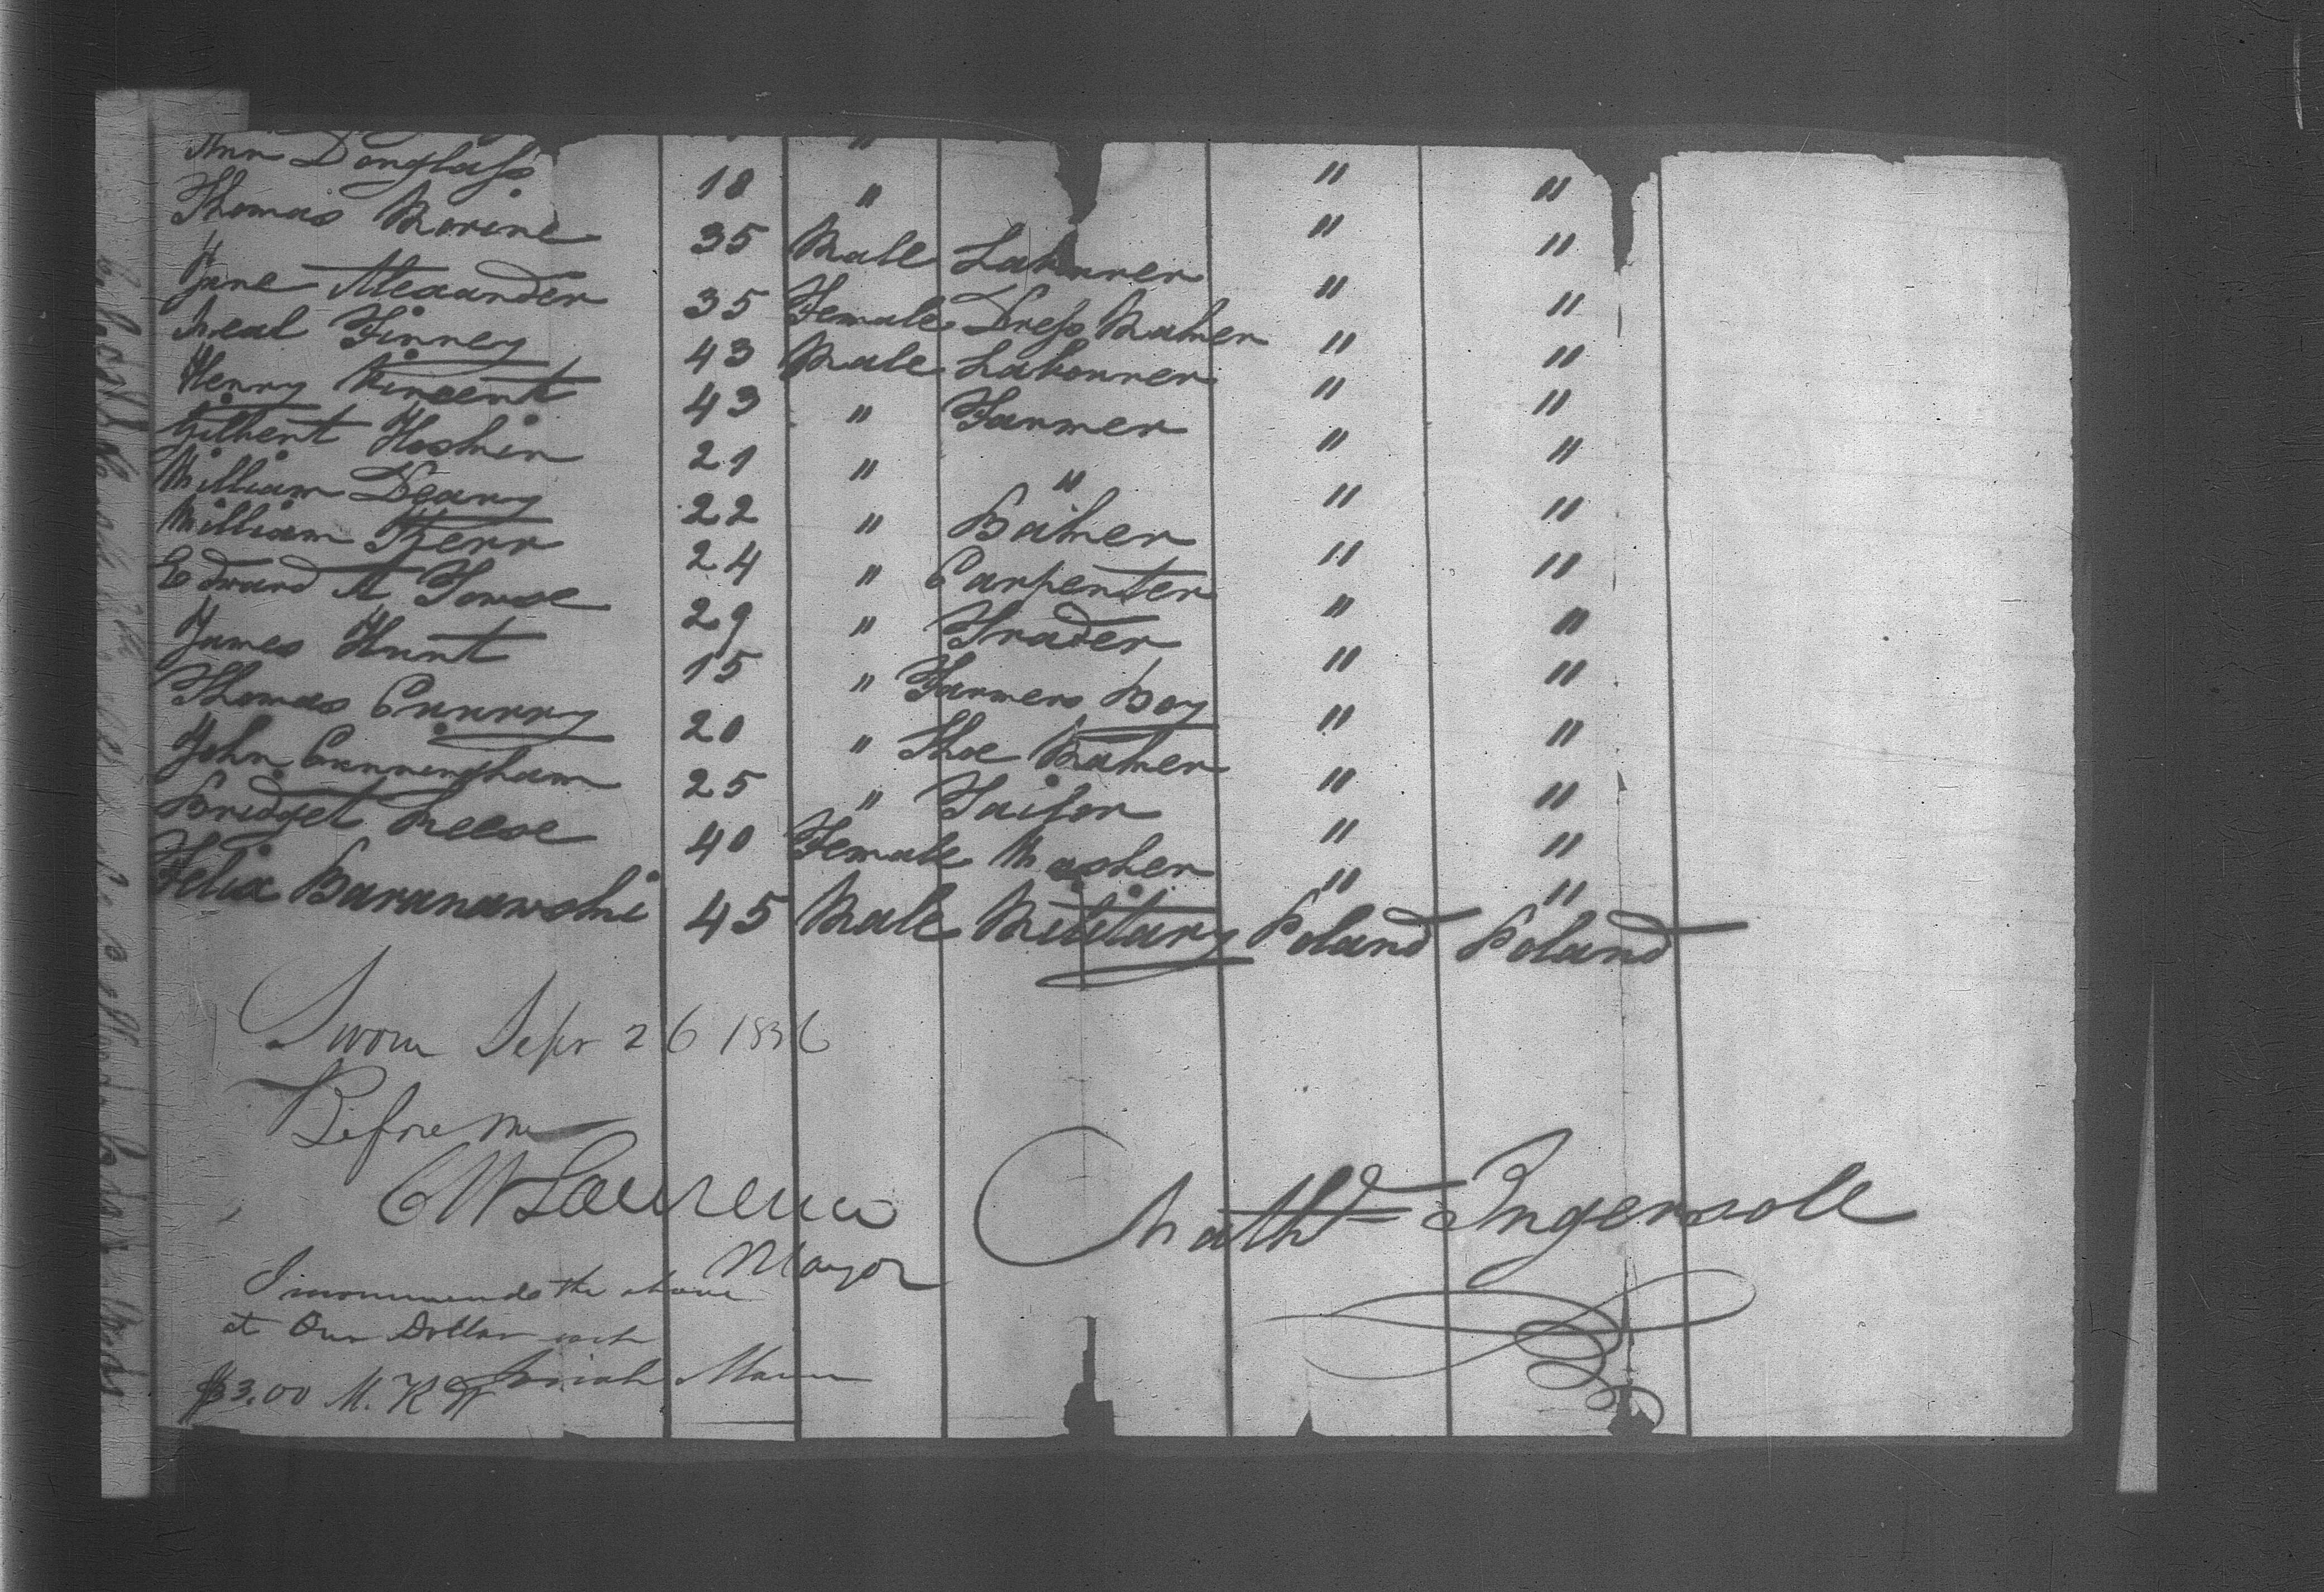 Ann Douglass 18 " " "
Thomas Morine 35 Male Labourer " "
Jane Alexander 35 Female Dress Maker " "
Neal Finney 43 Male Labourer " "
Henry Vincent 43 " Farmer " "
Gilbert Hoskin 21 " " " "
William Deany 22 " Baker " "
William Kerr 24 " Carpenter " "
Edward A Towse 29 " Trader " "
James Hunt 15 " Farmers Boy " "
Thomas Curry 20 " Shoe Maker " "
John Cunningham 25 " Tailor " "
Bridget Reese 40 Female Washer " "
Felix Baranawski 45 Male Military Poland Poland
Sworn Sepr 26 1836
Before me
CW Lawrence
Mayor
Nathl Ingersoll
I recommend the above
at One Dollar each
$3.00 M. Josiah Mann